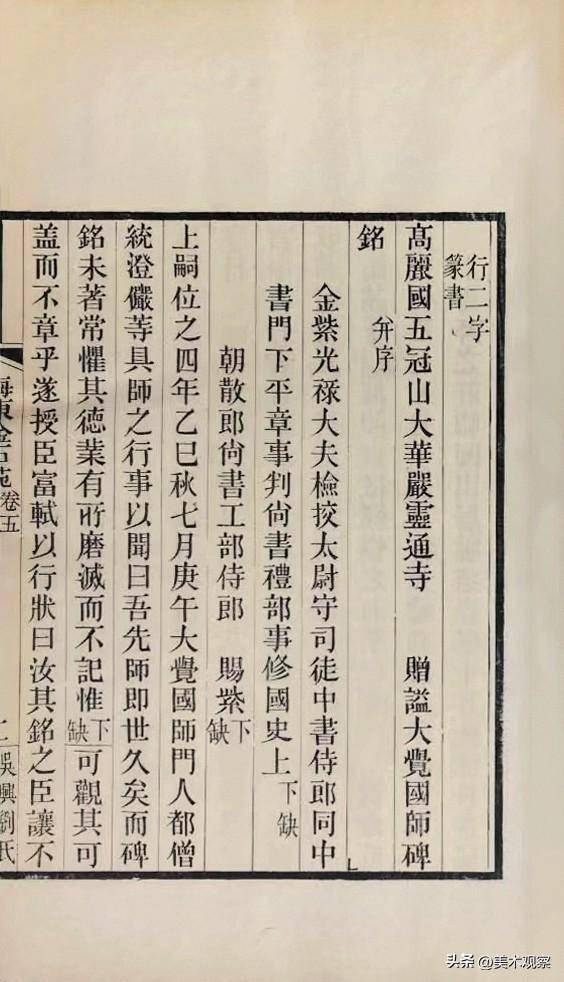 行二字
篆書
高麗國五冠山大華嚴靈通寺　贈謚大覺國師碑
銘 并序
金紫光祿大夫檢挍太尉守司徒中書侍郎同中
書門下平章事判尚書禮部事修國史上 下缺
朝散郎尚書工部侍郎　賜紫 下缺
上嗣位之四年乙巳秋七月庚午大覺國師門人都僧
統澄儼等具師之行事以聞曰吾先師即世久矣而碑
銘未著常懼其德業有所磨滅而不記惟下缺可觀其可
盖而不章乎遂授臣富軾以行狀曰汝其銘之臣讓不
海東金石苑 卷五
吳興劉氏
头条 @美术观察